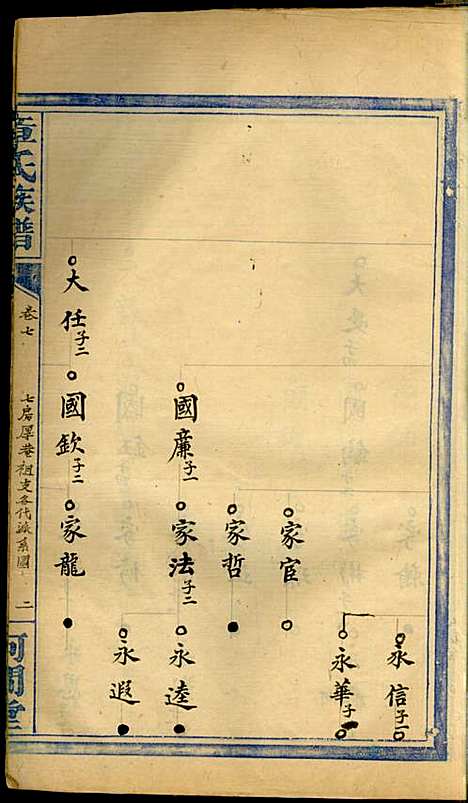 永信子一
永華子一
家官
家哲
國廉子一
家法子二
永逵
永遐
大任子二
國欽子二
家龍
章氏族譜
卷七
七房厚菴祖支各代派系圖
二
河間堂